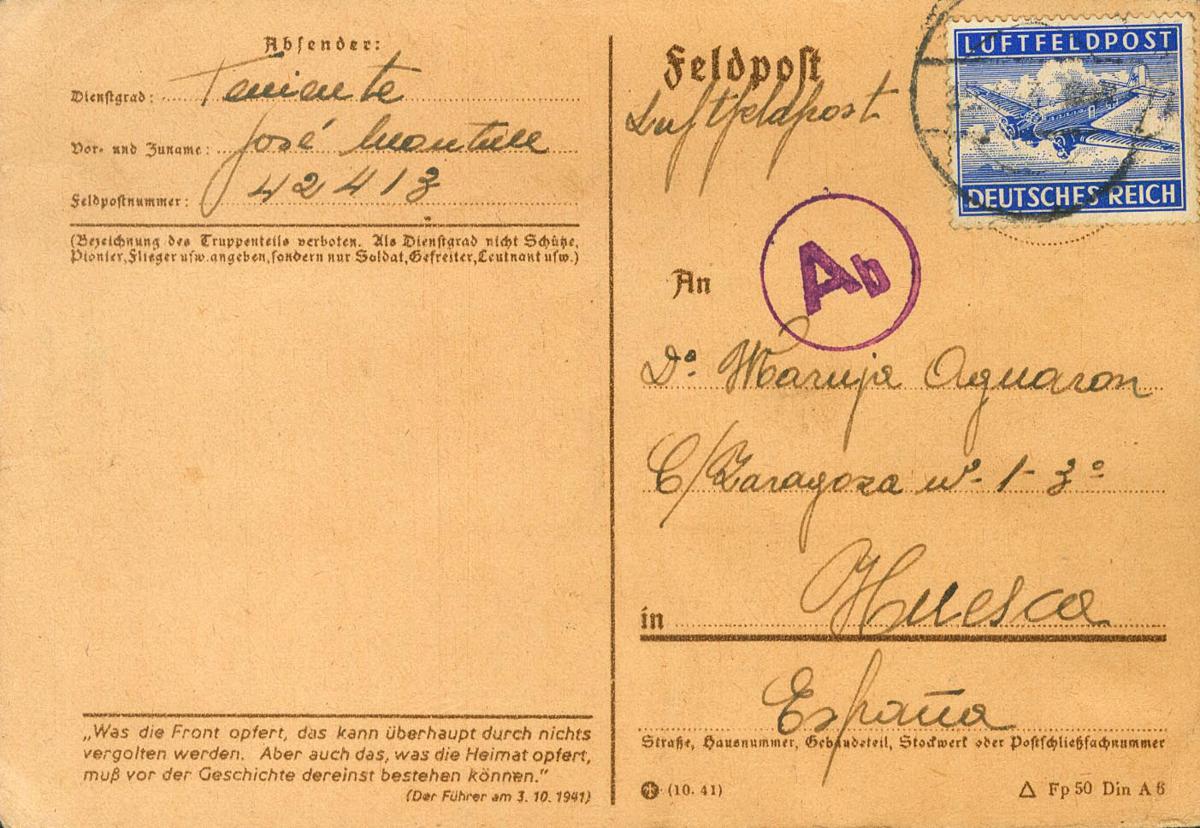 Absender:
Dienstgrad: Teniente
Vor- und Zuname: José
Feldpostnummer: 42413
(Bezeichnung des Truppenteils verboten. Als Dienstgrad nicht Schütze,
Pionier, Flieger usw. angeben, sondern nur Soldat, Gefreiter, Leutnant usw.)
„Was die Front opfert, das kann überhaupt durch nichts
vergolten werden. Aber auch das, was die Heimat opfert,
muß vor der Geschichte dereinst bestehen können.”
(Der Führer am 3. 10. 1941)
Feldpost
Luftfeldpost
LUFTFELDPOST
DEUTSCHES REICH
Ab
An
Dª Maruja Aguaron
C/ Zaragoza nº 1-3º
in Huesca
España
Straße, Hausnummer, Gebäudeteil, Stockwerk oder Postschließfachnummer
(10. 41)
△ Fp 50 Din A 6